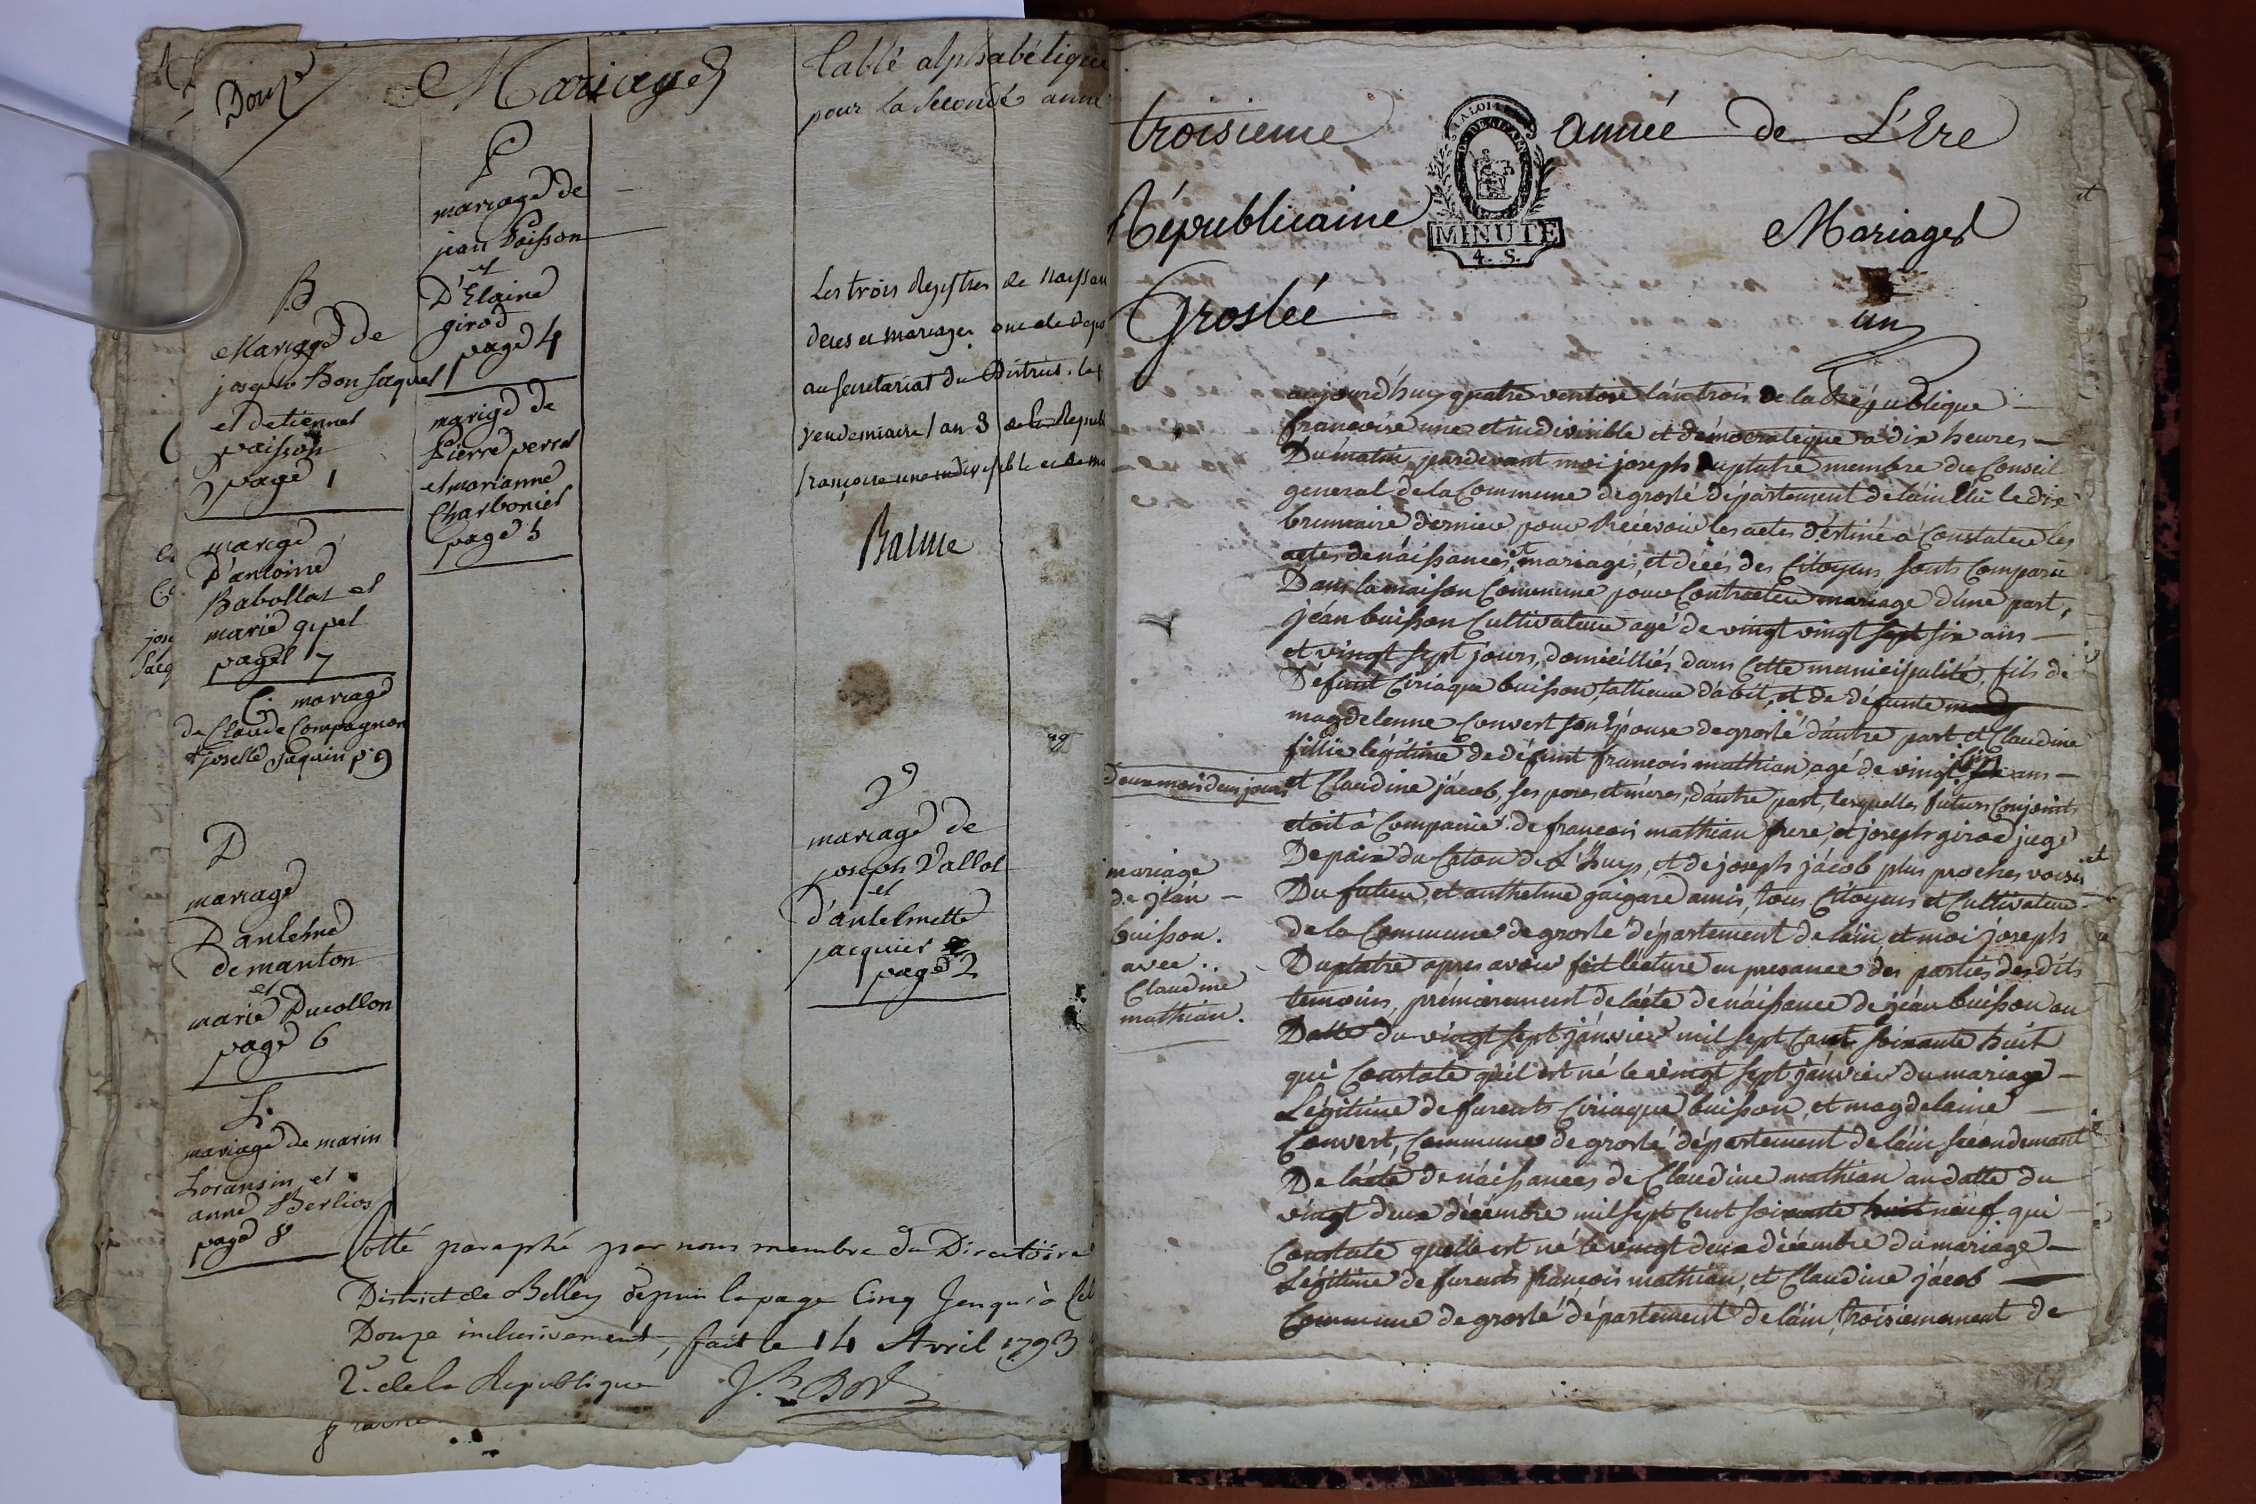 Douze
Mariages
Table alphabétique
pour la Seconde anné
B
Mariage de
joseph Bon Jaquet
et detiennet
paisson
page 1
marige
D'antoine
Babollat et
marie
page 7
C. mariage
de Claude Compagnon
et joseltte Jaquin p. 9
D
mariage
D'antelme
demanton
et
marie Ducollon
page 6
L.
mariage de marin
Loransin et
anne Berlios
page 8
P
mariage de
jean Poisson
et
D'Elaine
girod
page 4
marige de
Pierre perrot
et marianne
Charbonier
page 5
Les trois Registres de naissan
deces et mariages
au secretariat du District. le
vendemiaire l'an 3 de la Republi
françoise une indivisible et
Balme
V
mariage de
joseph Vallot
et
d'antelmette
jacquier
page 2
Cotté paraphé par nous membre du Directoire
District de Belley depuis la page Cinq Jusqu'à
Douze inclusivement, fait le 14 Avril 1793
2e. de la Republique
troisieme année de L'Ere
Républicaine Mariages
MINUTE
4. S.
Groslée
un
aujourd'huy quatre ventose l'an trois de la République
francoise une et indivisible et démocratique a dix heures
Du matin, pardevant moi joseph Duplatre membre du Conseil
general de la Commune de groslé département de l'ain Elu le dix
brumaire dernier pour Récevoir les actes déstiné a Constater les
actes de náissances, mariages, et décés des Citoyens, sonts Comparu
Dans la maison Commune pour Contracter mariage d'une part,
jéan buisson Cultivateur agé de vingt vingt sept six ans
et vingt sept jours, domiciliés dans Cette municipalité, fils de
Défunt Ciriaque buisson, tallieur d'abit, et de défunte
magdelenne Convert son Epouse de groslé d'autre part et Claudine
fillie legitime de défunt francois mathian, agé de vingt cinq ans
deux mois deux jours et Claudine jácob, ses peres et méres, d'autre part, lesquelles futurs Conjoints
etoit a Compagnié de francois mathian frere et joseph girod juge
De paix du Caton de L'huis, et de joseph jácob plus proches voisin
Du futur, et anthelme guigard amis, tous Citoyens et Cultivateur
de la Commune de groslé département de l'ain, et moi joseph
Duplatre apres avoir fait lecture en presance des parties des dits
temoins, prémierement de l'acte de náissance de jéan buisson au
Datte du vingt sept jánvier mil sept Cent soixante huit
qui Constate quil est né le vingt sept jánvier du mariage
Légitime de furents Ciriaque buisson, et magdelaine
Convert, Commune de groslé département de l'ain sécondemant
De l'acte de náissances de Claudine mathian au datte du
vingt deux décembre mil sept Cent soixante huit neuf qui
Constate quelle est né le vingt deux décembre du mariage
Légitime de furents francois mathian, et Claudine jácob
Commune de groslé département de l'ain, troisiemement de
mariage
de jéan
buisson.
avec..
Claudine
mathian.